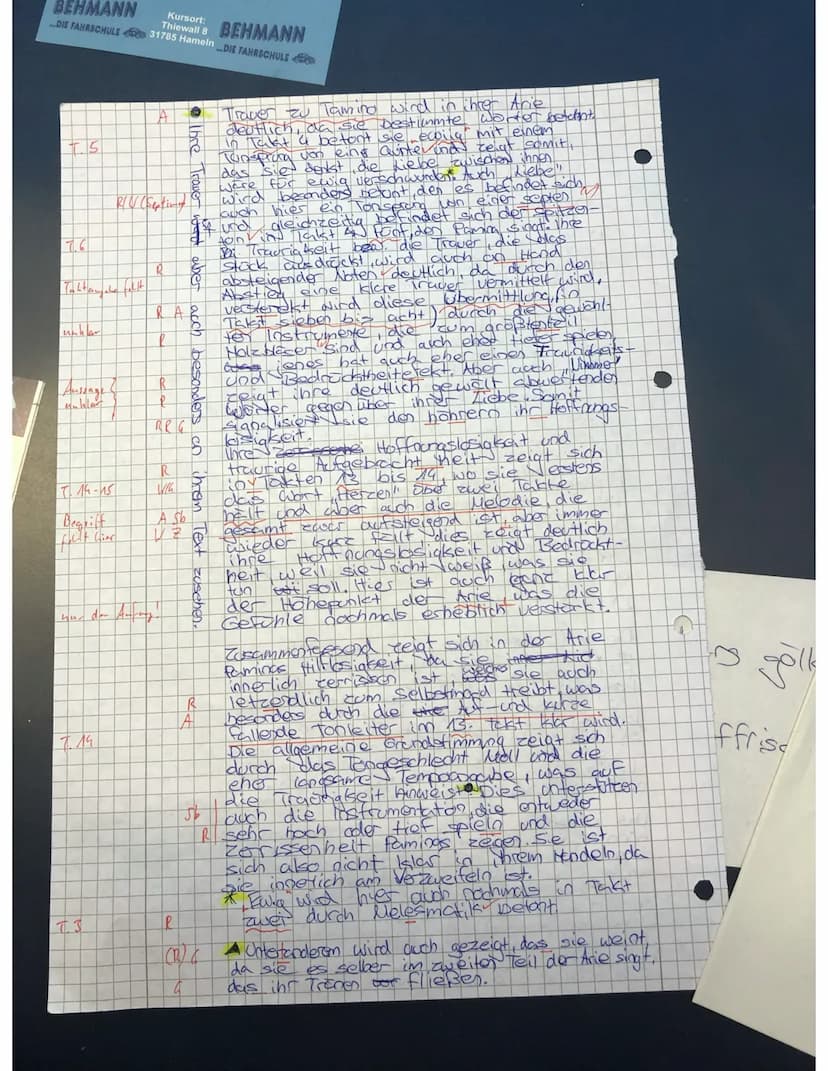 BEHMANN
...DIE FAHRSCHULE
Kursort:
Thiewall 8
31785 Hameln
BEHMANN
...DIE FAHRSCHULE
A
Trauer zu Tamino wird in ihrer Arie
deutlich, da sie bestimmte Wörter betohnt.
T. 5
In Takt 4 betont sie "ewig" mit einem
Tonsprung von eine Quinte und zeigt somit,
das sie denkt, die Liebe zwischen ihnen
wäre für ewig verschwunden. Auch "Liebe"
R/V (Septime)
wird besonders betont, den es befindet sich
auch hier ein Tonsprung von einer septen
und gleichzeitig befindet sich der Spitzen-
T.6
ton in Takt fünf, den Pamina singt. Ihre
Traurigkeit die Trauer, die das
Stück ausdrückt, wird auch an Hand
R
absteigender Noten deutlich, da durch den
Taktangabe fehlt
Abstieg eine klare Trauer vermittelt wird.
verstärkt wird diese Übermittlung, in
R A
Takt sieben bis acht, durch die gewähl-
unklar
ten Instrumente, die zum größtenteil
R
Holzbläser sind und auch eher tiefer spielen
jenes hat auch eher einen Traurigkeits-
Aussage
unklar
R
und Bedrücktheitefekt. Aber auch "Nimmer"
R
zeigt ihre deutlich gewält abwertenden
Wörter gegenüber ihrer Liebe. Somit
RR G
signalisiert sie den höhrern ihr Hoffnungs-
losigkeit.
Ihre Hoffnungslosigkeit und
R
traurige Aufgebrachtheit zeigt sich
T. 14-15
in Takten 13 bis 14, wo sie
das Wort "Herzen" über zwei Takte
Begriff
fehlt hier
A Sb
hält und aber auch die Melodie, die
V Z
gesamt zwar aufsteigend ist, aber immer
wieder kurz fällt, dies zeigt deutlich
ihre Hoffnungslosigkeit und Bedrückt-
heit, weil sie nicht weiß, was sie
tun soll. Hier ist auch ganz klar
nur der Anfang!
der Höhepunkt der Arie, was die
Gefühle nochmals erheblich verstärkt.
Zusammenfassend zeigt sich in der Arie
Paminas Hilflosigkeit, da sie
innerlich zerrissen ist sie auch
R
letzendlich zum Selbstmord treibt, was
A
besonders durch die Auf- und kurze
T. 14
fallende Tonleiter im 13. Takt klar wird.
Die allgemeine Grundstimmung zeigt sich
durch das Tongeschlecht Moll und die
eher langsame Tempoangabe, was auf
die Traurigkeit hinweist. Dies unterstützen
Sb
auch die Instrumentation, die entweder
R
sehr hoch oder tief spieln und die
zerissenheit Paminas zeigen. Sie ist
sich also nicht klar in ihrem Handeln, da
sie innerlich am Verzweifeln ist.
* "Ewig" wird hier auch nochmals in Takt
T. 3
R
zwei durch Melesmatik betont.
(R) G
Unteranderem wird auch gezeigt, das sie weint,
da sie es selber im zweiten Teil der Arie singt,
G
das ihr Tränen fließen.
Ihre Trauer ist aber auch besonders in ihren Text zusehen.